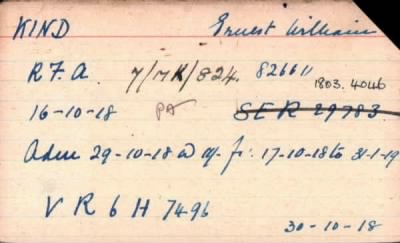 KIND Ernest William
R.F.A. 7/MK/824. 826611
1803. 4046
16-10-18 PA SER 29783
Adm 29-10-18 W fr: 17-10-18 to 31-1-19
V R 6 H 7496
30-10-18